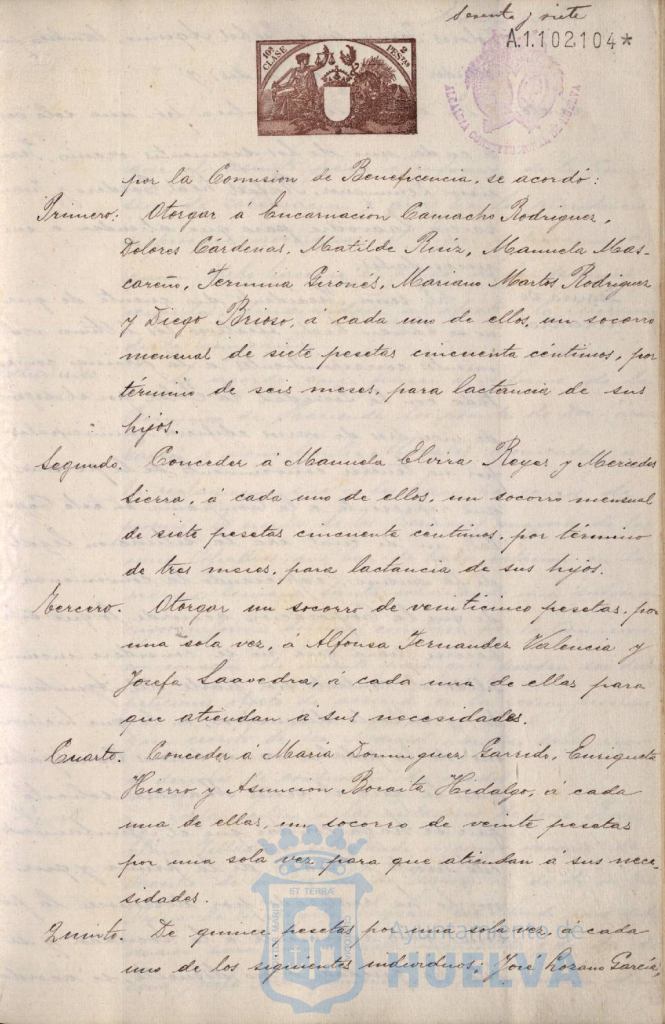 sesenta y siete
A.1.102,104*
10ª CLASE
2 PESTAS
ALCALDIA CONSTITUCIONAL DE HUELVA
por la Comision de Beneficencia, se acordó:
Primero: Otorgar á Encarnacion Camacho Rodriguez,
Dolores Cárdenas, Matilde Ruiz, Manuela Mas-
careño, Fermina Gironés, Mariano Martos Rodriguez
y Diego Brioso, á cada uno de ellos, un socorro
mensual de siete pesetas cincuenta céntimos, por
término de seis meses, para lactancia de sus
hijos.
Segundo. Conceder á Manuela Elvira Reyes y Mercedes
Sierra, á cada uno de ellos, un socorro mensual
de siete pesetas cincuenta céntimos, por término
de tres meses, para lactancia de sus hijos.
Tercero. Otorgar un socorro de veinticinco pesetas, por
una sola vez, á Alfonsa Fernandez Valencia y
Josefa Saavedra, á cada una de ellas para
que atiendan á sus necesidades.
Cuarto. Conceder á Maria Dominguez Garrido, Enriqueta
Hierro y Asuncion Boraita Hidalgo, á cada
una de ellas, un socorro de veinte pesetas
por una sola vez para que atiendan á sus nece-
sidades.
Quinto. De quince pesetas por una sola vez, á cada
uno de los siguientes individuos; José Lozano García,
ET TERRA
Ayuntamiento de
HUELVA